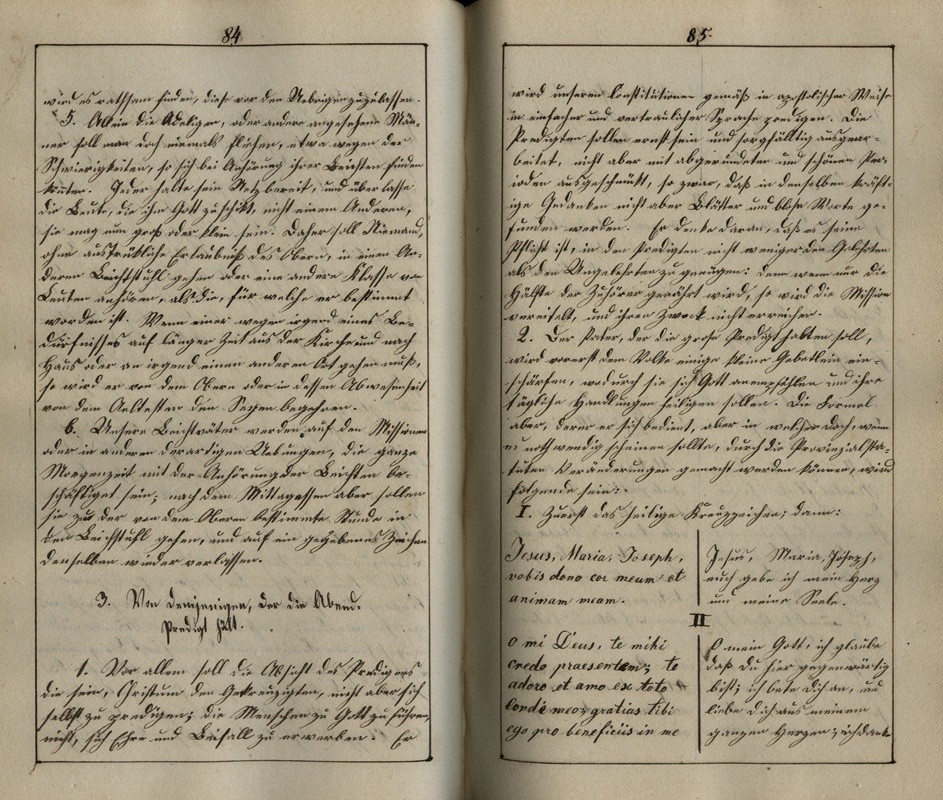 84
wird es rathsam finden, diese vor den Uebrigen zuzulassen.
5. Allein die Adeligen, oder andere angesehene Män-
ner soll man doch niemals fliehen, etwa wegen der
Schwierigkeiten, so sich bei Anhörung ihrer Beichten finden
könnten. Jeder halte sein Netz bereit, und überlasse
die Leute, die ihm Gott zuschikt, nicht einem Anderen,
sie mag nun groß oder klein sein. Daher soll Niemand,
ohne ausdrükliche Erlaubniß des Obern, in einen An-
deren Beichtstuhl gehen oder eine andere Klasse von
Leuten anhören, als die, für welche er bestimmt
worden ist. Wenn einer wegen irgend eines Be-
dürfnisses auf länger Zeit aus der Kirche und nach
Haus oder an irgend einen anderen Ort gehen muß,
so wird er von dem Obern oder in dessen Abwesenheit
von dem Aeltesten den Segen begehren.
6. Unsere Beichtväter werden auf den Missionen
oder in anderen derartigen Uebungen, die ganze
Morgenzeit mit der Anhörung der Beichten be-
schäftiget sein; nach dem Mittagessen aber sollen
sie zu der von dem Oberen bestimmte Stunde in
den Beichtstuhl gehen, und auf ein gegebenes Zeichen
denselben wieder verlassen.
3. Von demjenigen, der die Abend-
Predigt hält.
1. Vor allem soll die Absicht des Predigers
die sein, Christum den Gekreuzigten, nicht aber sich
selbst zu predigen; die Menschen zu Gott zu führen,
nicht, sich Ehre und Beifall zu erwerben. Er
85
wird unseren Constitutionen gemäß in apostolischer Weise
in einfacher und vertraulicher Sprache predigen. Die
Predigten sollen ernst sein und sorgfältig ausgear-
beitet, nicht aber mit abgerundeten und schönen Per-
ioden ausgeschmükt, so zwar, daß in denselben kräft-
ige Gedanken nicht aber Blätter und bloße Worte ge-
funden werden. Er denke daran, daß es seine
Pflicht ist, in den Predigten nicht weniger den Gelehrten
als den Ungelehrten zu genügen: denn wenn nur die
Hälfte der Zuhörer genährt wird, so wird die Mission
vereitelt, und ihren Zweck nicht erreichen.
2. Der Pater, der die große Predigt halten soll,
wird vorerst dem Volke einige kleine Gebetlein ein-
schärfen, wodurch sie sich Gott anempfehlen und ihre
tägliche Handlungen heiligen sollen. Die Formel
aber, deren er sich bedient, aber in welcher doch, wenn
es nothwendig scheinen sollte, durch die Provinzialsta-
tuten Veränderungen gemacht werden können, wird
folgende sein:
I. Zuerst das heilige Kreuzzeichen; dann:
Jesus, Maria, Joseph,
vobis dono cor meum et
animam meam.
Jesus, Maria, Joseph,
euch gebe ich mein Herz
und meine Seele.
II
O mi Deus, te mihi
credo praesentem; te
adoro et amo ex toto
corde meo; gratias tibi
ego pro beneficiis in me
O mein Gott, ich glaube
daß du hier gegenwärtig
bist; ich bete dich an, und
liebe dich aus meinem
ganzen Herzen; ich danke